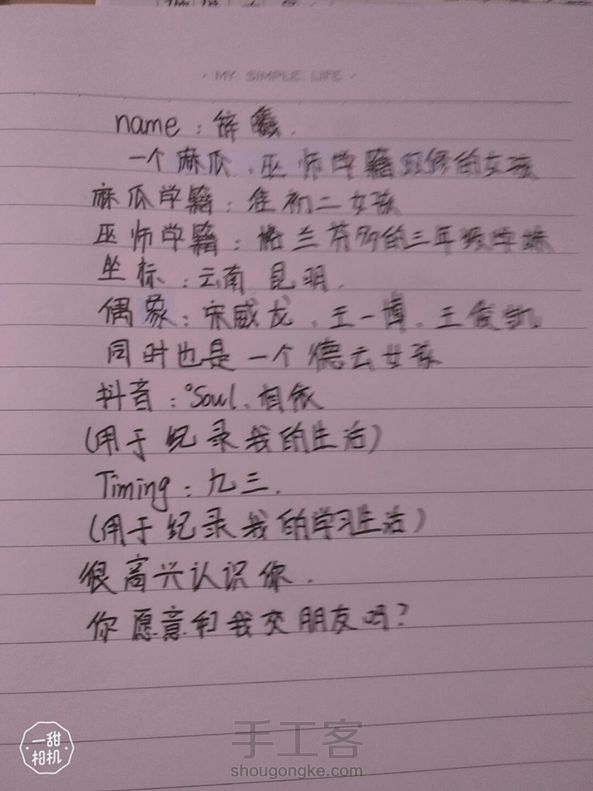 · MY SIMPLE LIFE ·
name：薛羲.
一个麻瓜、巫师学籍双修的女孩
麻瓜学籍：准初二女孩
巫师学籍：格兰芬多的三年级学妹
坐标：云南 昆明.
偶象：宋威龙、王一博、王俊凯
同时也是一个德云女孩
抖音：°Soul、相依
(用于纪录我的生活)
Timing：九三.
(用于纪录我的学习生活)
很高兴认识你.
你愿意和我交朋友吗？
一甜
相机
手工客
shougongke.com